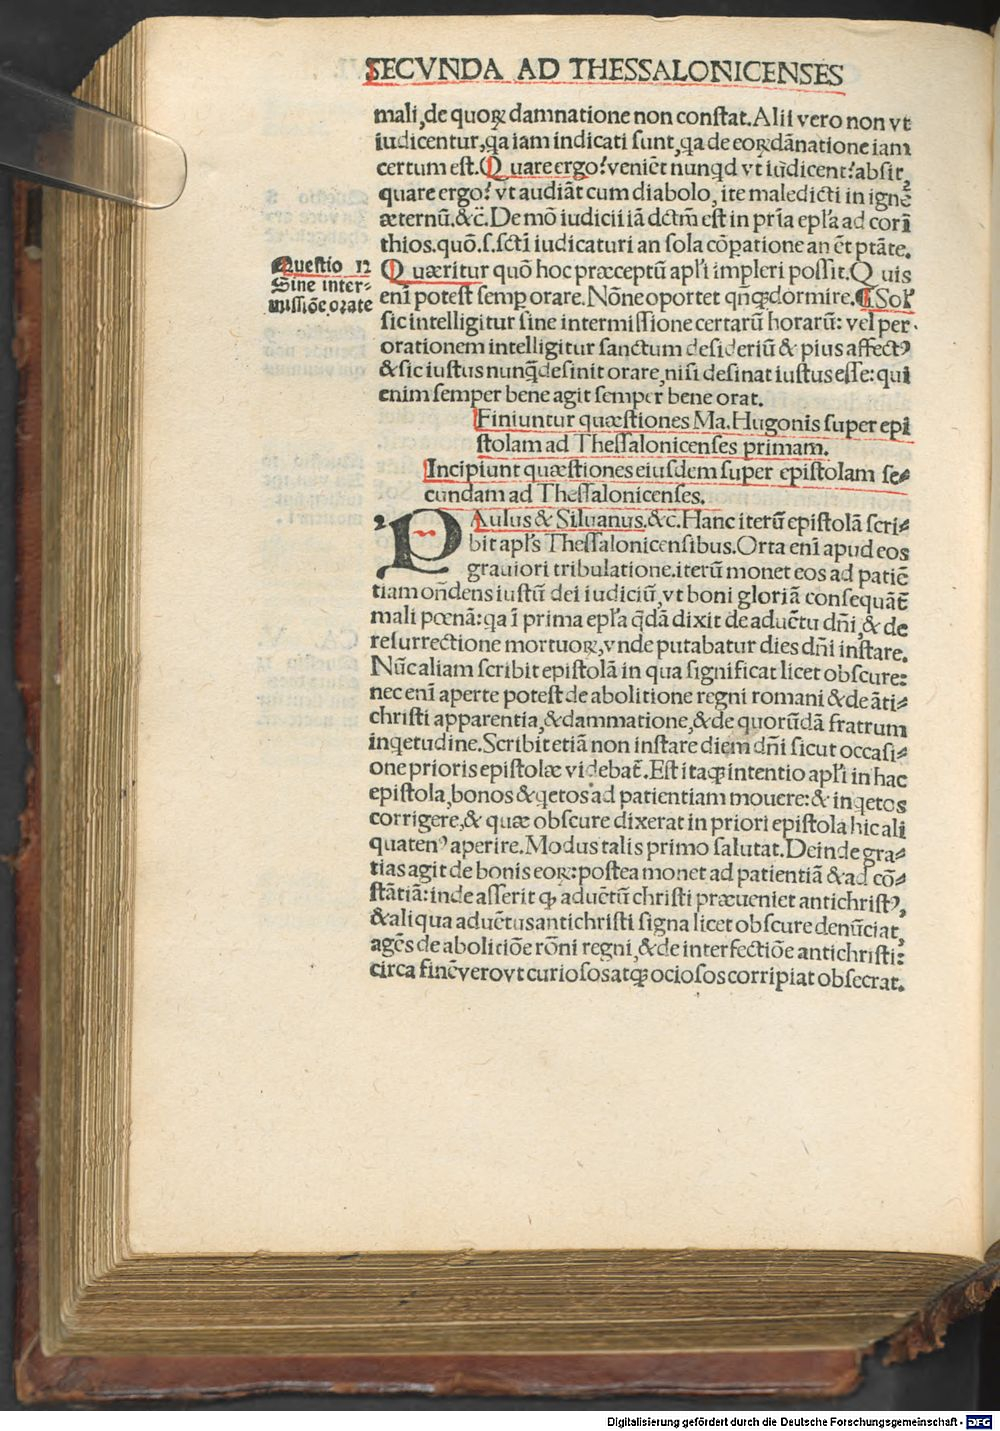 SECVNDA AD THESSALONICENSES
mali, de quoꝝ damnatione non constat. Alii vero non vt
iudicentur, qa iam indicati sunt, qa de eoꝝ dãnatione iam
certum est. Quare ergo? veniẽt nunqd vt iudicent̃? absit,
quare ergo? vt audiãt cum diabolo, ite maledicti in ignẽ
æternũ. &c̃. De mõ iudicii iã dctm̃ est in pria epl'a ad corĩ
thios. quõ. s. sctĩ iudicaturi an sola cõpatione an ẽt ptãte.
Questio 12
Sine inter-
missiõe orate
Quæritur quõ hoc præceptũ apl'i impleri possit. Quis
enĩ potest semp orare. Nõne oportet qnqꝫ dormire. ¶ Sol'
sic intelligitur sine intermissione certarũ horarũ: vel per
orationem intelligitur sanctum desideriũ & pius affectꝰ
& sic iustus nunq̃ desinit orare, nisi desinat iustus esse: qui
enim semper bene agit semper bene orat.
Finiuntur quæstiones Ma. Hugonis super epi
stolam ad Thessalonicenses primam.
Incipiunt quæstiones eiusdem super epistolam se-
cundam ad Thessalonicenses.
PAulus & Siluanus. &c̃. Hanc iterũ epistolã scri-
bit apl's Thessalonicensibus. Orta enĩ apud eos
grauiori tribulatione. iterũ monet eos ad patiẽ
tiam oñdens iustũ dei iudiciũ, vt boni gloriã consequãt̃
mali pœnã: qa ĩ prima epl'a q̃dã dixit de aduẽtu dñi, & de
resurrectione mortuoꝝ, vnde putabatur dies dñi instare.
Nũc aliam scribit epistolã in qua significat licet obscure:
nec enĩ aperte potest de abolitione regni romani & de ãti-
christi apparentia, & dammatione, & de quorũdã fratrum
inqetudine. Scribit etiã non instare diem dñi sicut occasi-
one prioris epistolæ videbat̃. Est itaqꝫ intentio apl'i in hac
epistola, bonos & qetos ad patientiam mouere: & inqetos
corrigere, & quæ obscure dixerat in priori epistola hic ali
quatenꝰ aperire. Modus talis primo salutat. Deinde gra-
tias agit de bonis eoꝝ: postea monet ad patientiã & ad cõ-
stãtiã: inde asserit ꝙ aduẽtũ christi præueniet antichristꝰ,
& aliqua aduẽtus antichristi signa licet obscure denũciat,
agẽs de abolitiõe rõni regni, & de interfectiõe antichristi:
circa finẽ vero vt curiosos atqꝫ ociosos corripiat obsecrat.
Digitalisierung gefördert durch die Deutsche Forschungsgemeinschaft - DFG